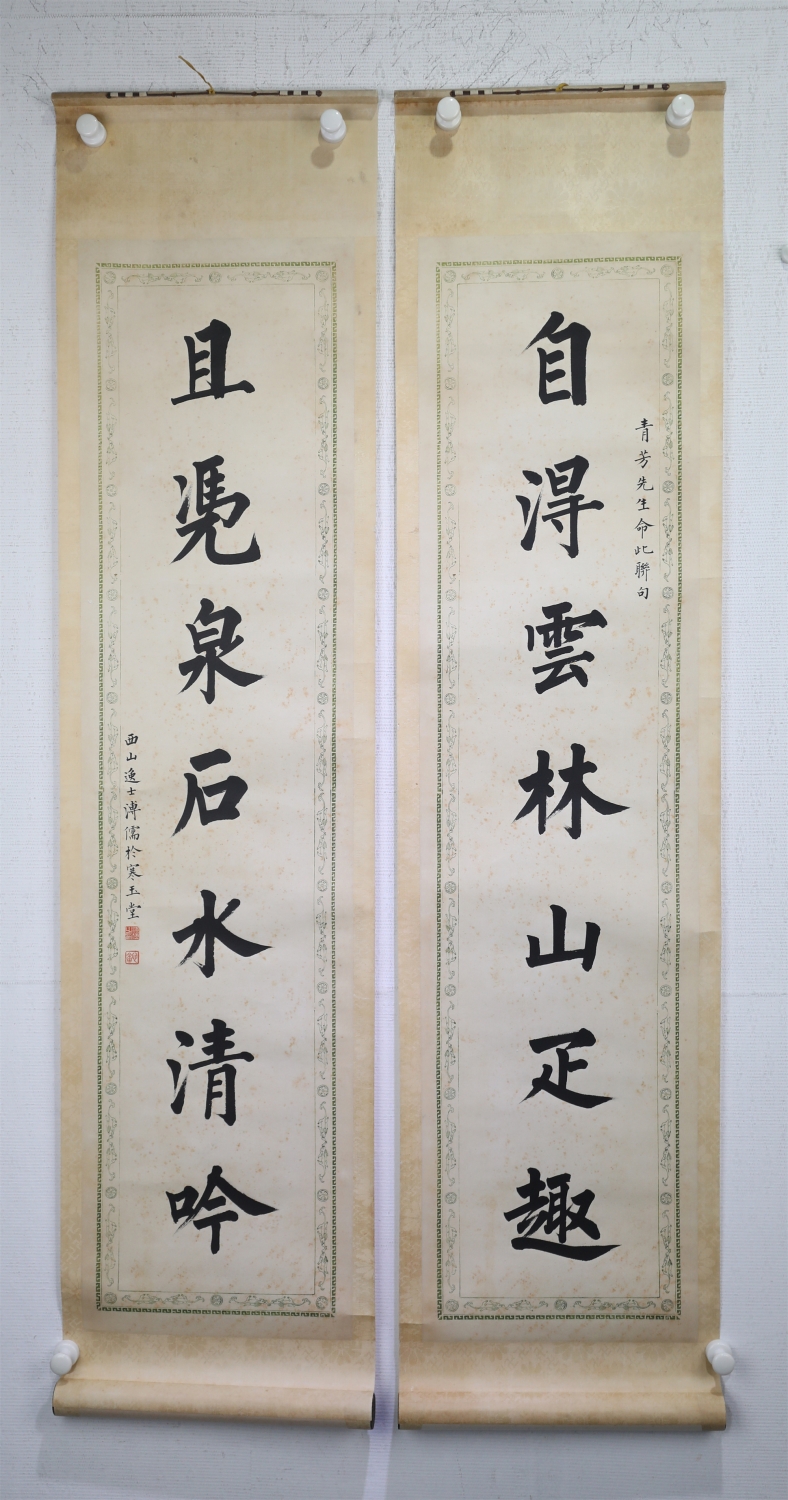 青芳先生命此聯句
自得雲林山疋趣
且凴泉石水清吟
西山逸士溥儒於寒玉堂